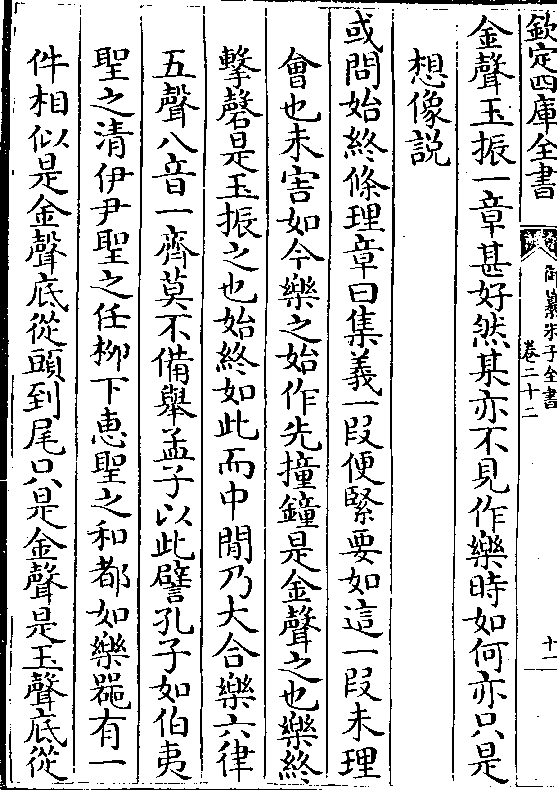 欽定四庫全書
御纂朱子全書
卷二十二
十二
金聲玉振一章甚好然某亦不見作樂時如何亦只是
想像説
或問始終條理章曰集義一段便緊要如這一段未理
會也未害如今樂之始作先撞鐘是金聲之也樂終
擊磬是玉振之也始終如此而中間乃大合樂六律
五聲八音一齊莫不備舉孟子以此譬孔子如伯夷
聖之清伊尹聖之任栁下恵聖之和都如樂噐有一
件相似是金聲底從頭到尾只是金聲是玉聲底從